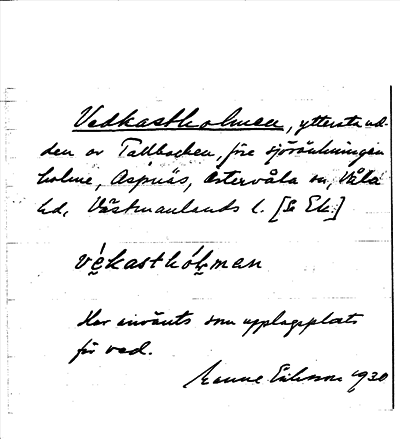 Vedkastholmen, yttersta ud-
den av Tallbacken, före sjösänkningen
holme, Aspnäs, Östervåla sn, Våla
hd, Västmanlands l. [S. Ek.]
vḙ́kasthól̥man
Har använts som upplagsplats
för ved.
Manne Eriksson 1930